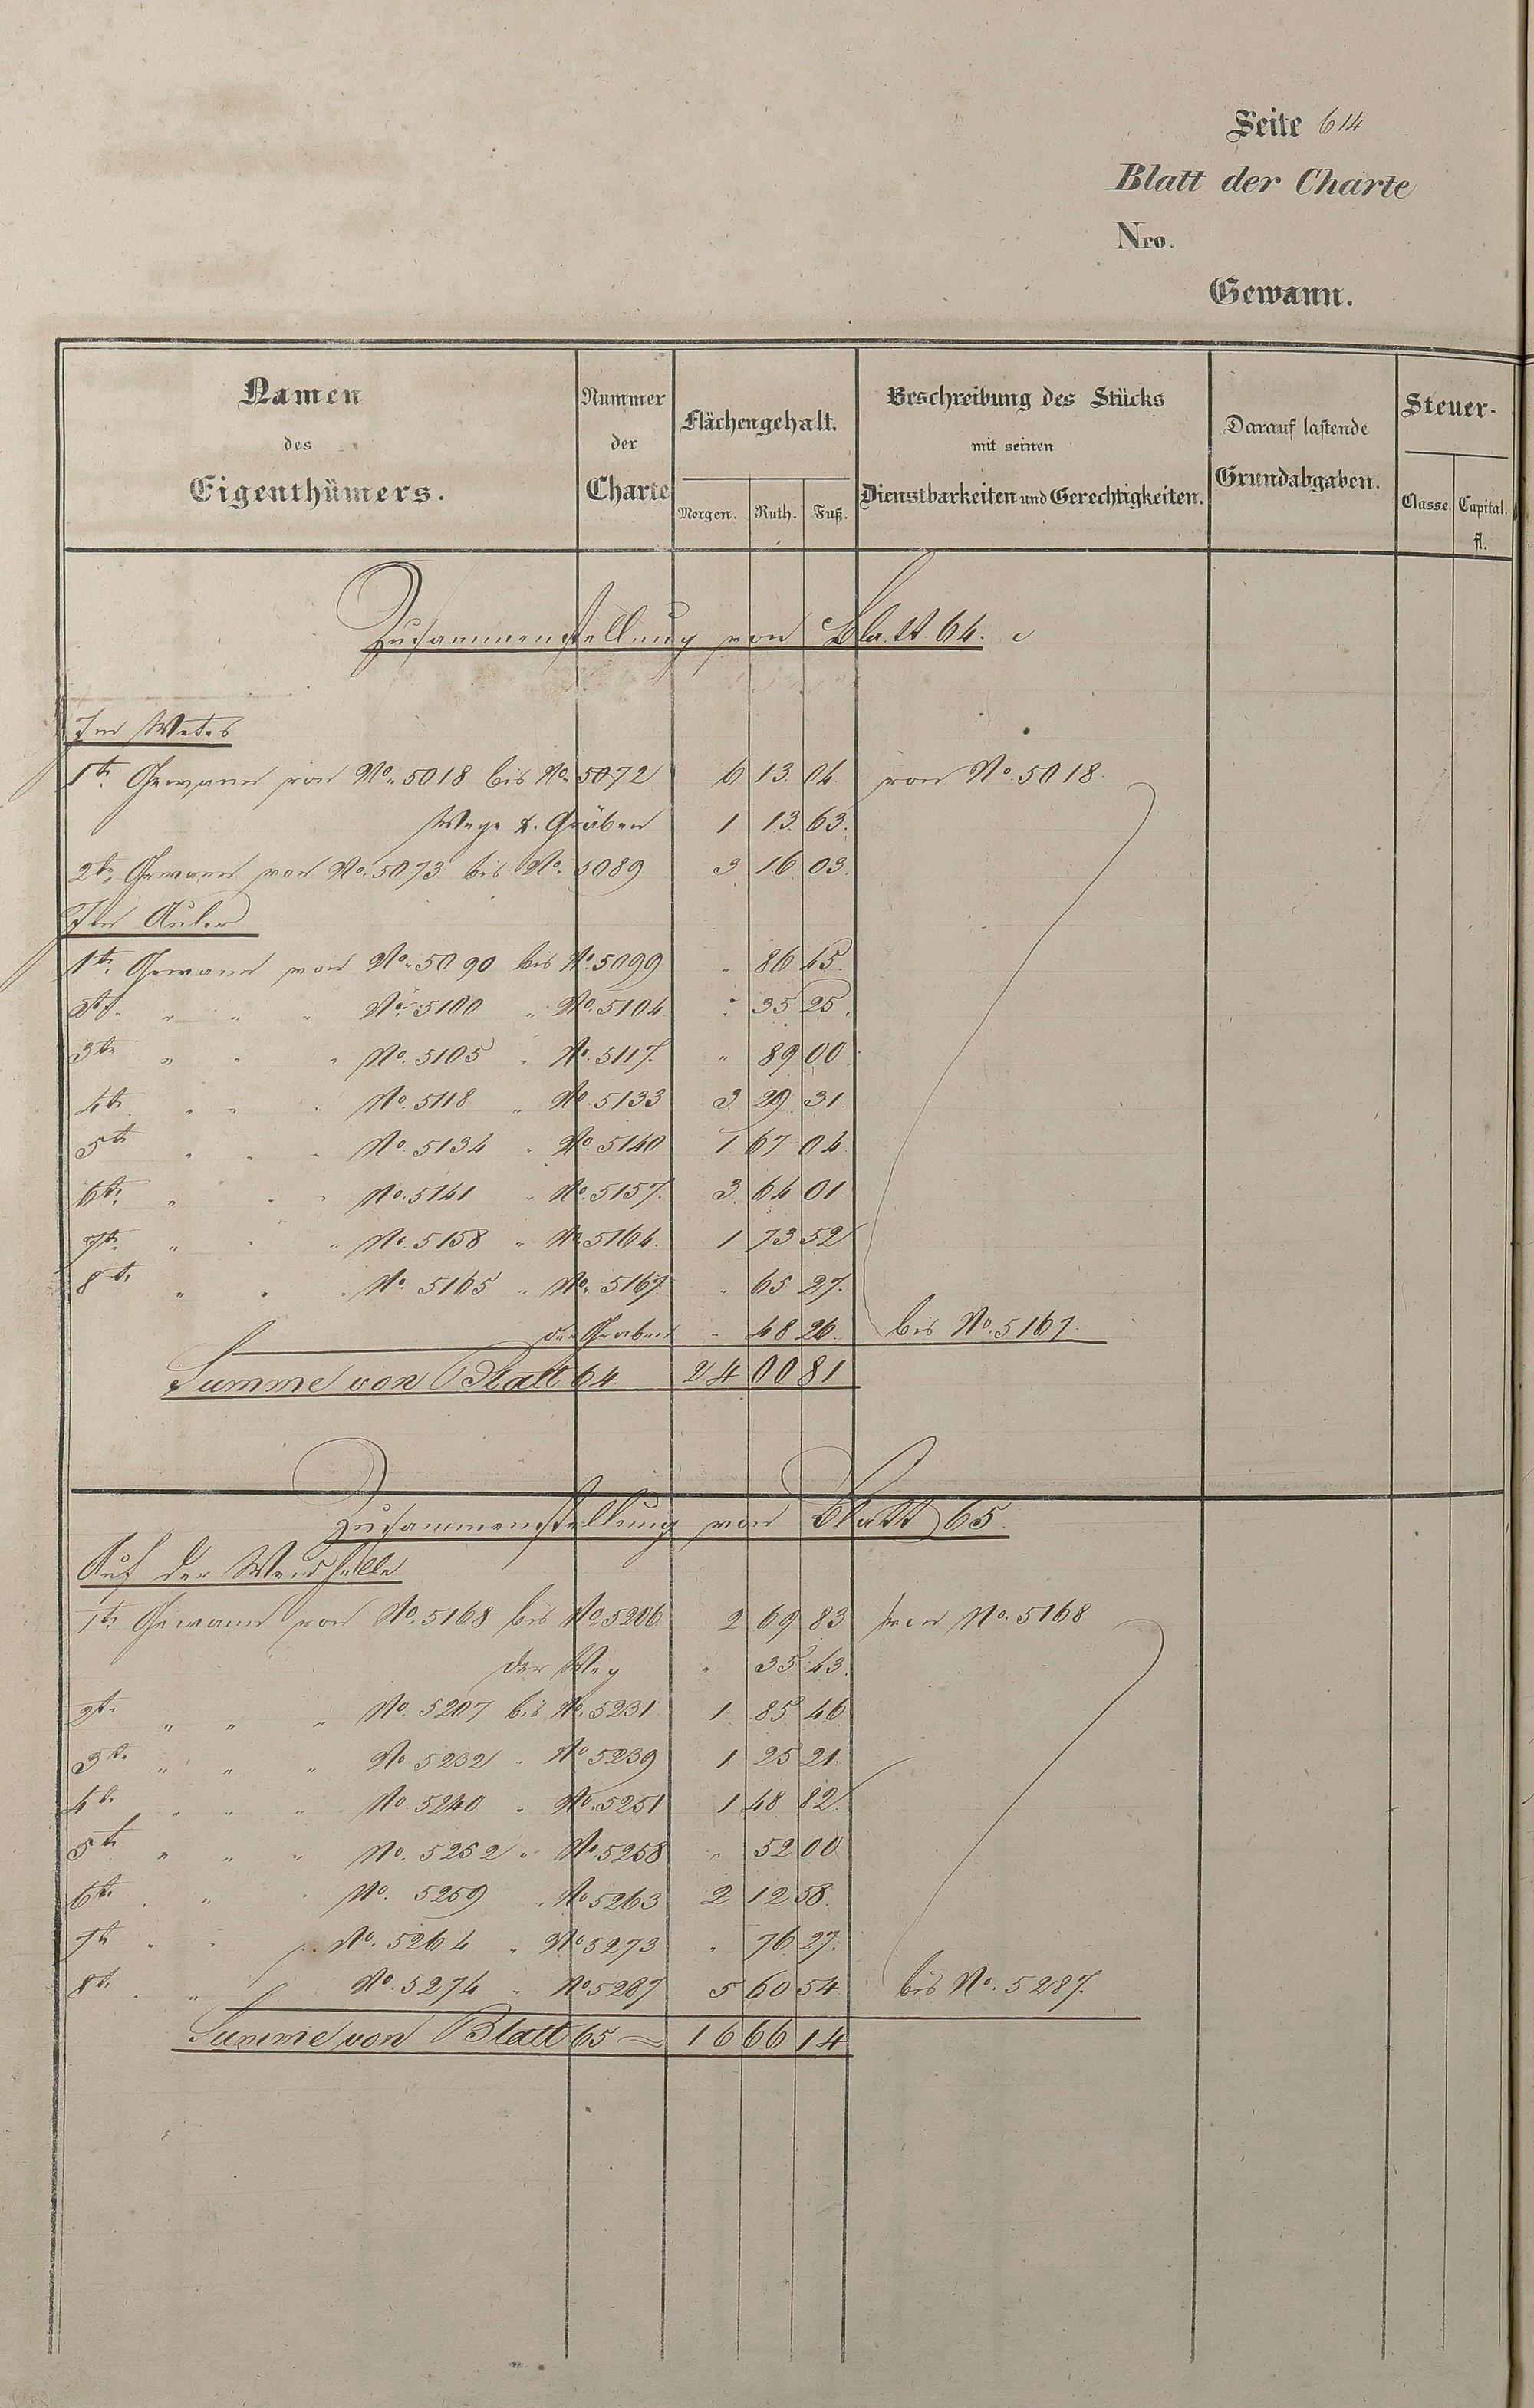 Seite 614
Blatt der Charte
Nro.
Gewann.
Namen des Eigenthümers.
Nummer der Charte
Flächengehalt.
Morgen. Ruth. Fuß.
Beschreibung des Stücks mit seinen Dienstbarkeiten und Gerechtigkeiten.
Darauf lastende Grundabgaben.
Steuer-
Classe. Capital. fl.
Zusammenstellung von Blatt 64.
Im
1te Gewann von No. 5018 bis No. 5072 6 13 04 von No. 5018
Wege & Gräben 1 13 63
2te Gewann von No. 5073 bis No. 5089 3 16 03
Im Auler
1te Gewann von No. 5090 bis No. 5099 " 86 45
2te " " " No. 5100 " No. 5104 " 35 25
3te " " " No. 5105 " No. 5117 " 89 00
4te " " " No. 5118 " No. 5133 3 29 31
5te " " " No. 5134 " No. 5140 1 67 04
6te " " " No. 5141 " No. 5157 3 64 01
7te " " " No. 5158 " No. 5164 1 73 52
8te " " " No. 5165 " No. 5167 " 65 27
der Graben " 48 26 bis No. 5167.
Summe von Blatt 64 24 00 81
Zusammenstellung von Blatt 65
Auf der
1te Gewann von No. 5168 bis No. 5206 2 69 83 von No. 5168
der Weg " 35 43
2te " " " No. 5207 bis No. 5231 1 85 46
3te " " " No. 5232 " No. 5239 1 25 21
4te " " " No. 5240 " No. 5251 1 48 82
5te " " " No. 5252 " No. 5258 " 52 00
6te " " " No. 5259 " No. 5263 2 12 58
7te " " " No. 5264 " No. 5273 " 76 27
8te " " No. 5274 " No. 5287 5 60 54 bis No. 5287.
Summe von Blatt 65 = 16 66 14